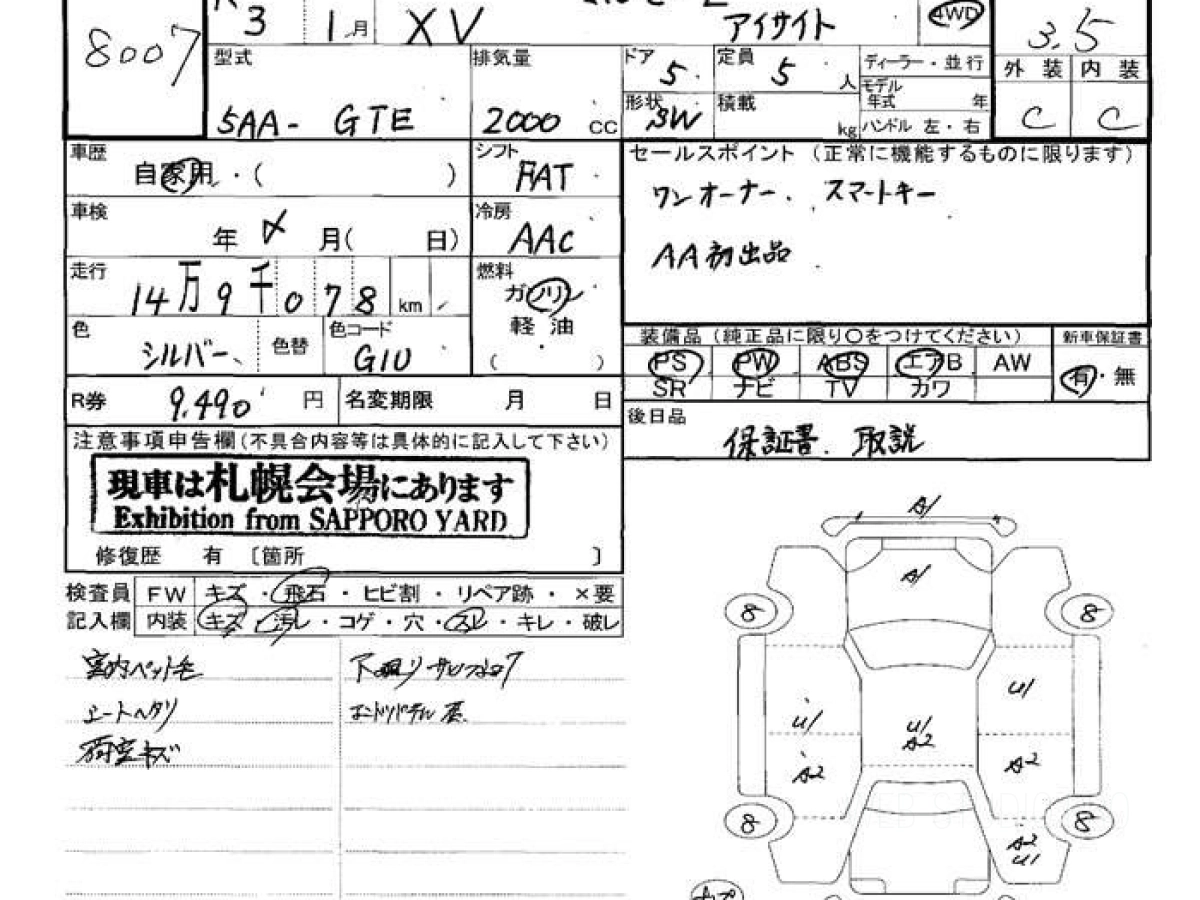 8007
3 1月 XV アイサイト 4WD 3.5
型式 排気量 ドア 5 定員 5人 ディーラー・並行 外装 内装
5AA- GTE 2000 cc 形状 SW 積載 kg モデル年式 年 C C
ハンドル 左・右
車歴 自家用・( ) シフト FAT セールスポイント (正常に機能するものに限ります)
ワンオーナー. スマートキー
車検 年 〆 月( 日) 冷房 AAC
AA初出品
走行 14万9千078km 燃料 ガソリン
軽油
( ・ )
色 シルバー 色替 色コード G1U
装備品 (純正品に限り○をつけてください) 新車保証書
PS PW ABS エアB AW 有・無
SR ナビ TV カワ
R券 9,490円 名変期限 月 日
後日品 保証書. 取説
注意事項申告欄(不具合内容等は具体的に記入して下さい)
現車は札幌会場にあります
Exhibition from SAPPORO YARD
修復歴 有 〔箇所 〕
検査員 FW キズ・飛石・ヒビ割・リペア跡・×要
記入欄 内装 キズ・汚レ・コゲ・穴・スレ・キレ・破レ
室内ペット毛
シートヘタリ
荷室キズ
A1
A1
8 8
U1
U1 U1
A2
A2 A2
8 8
A2
U1